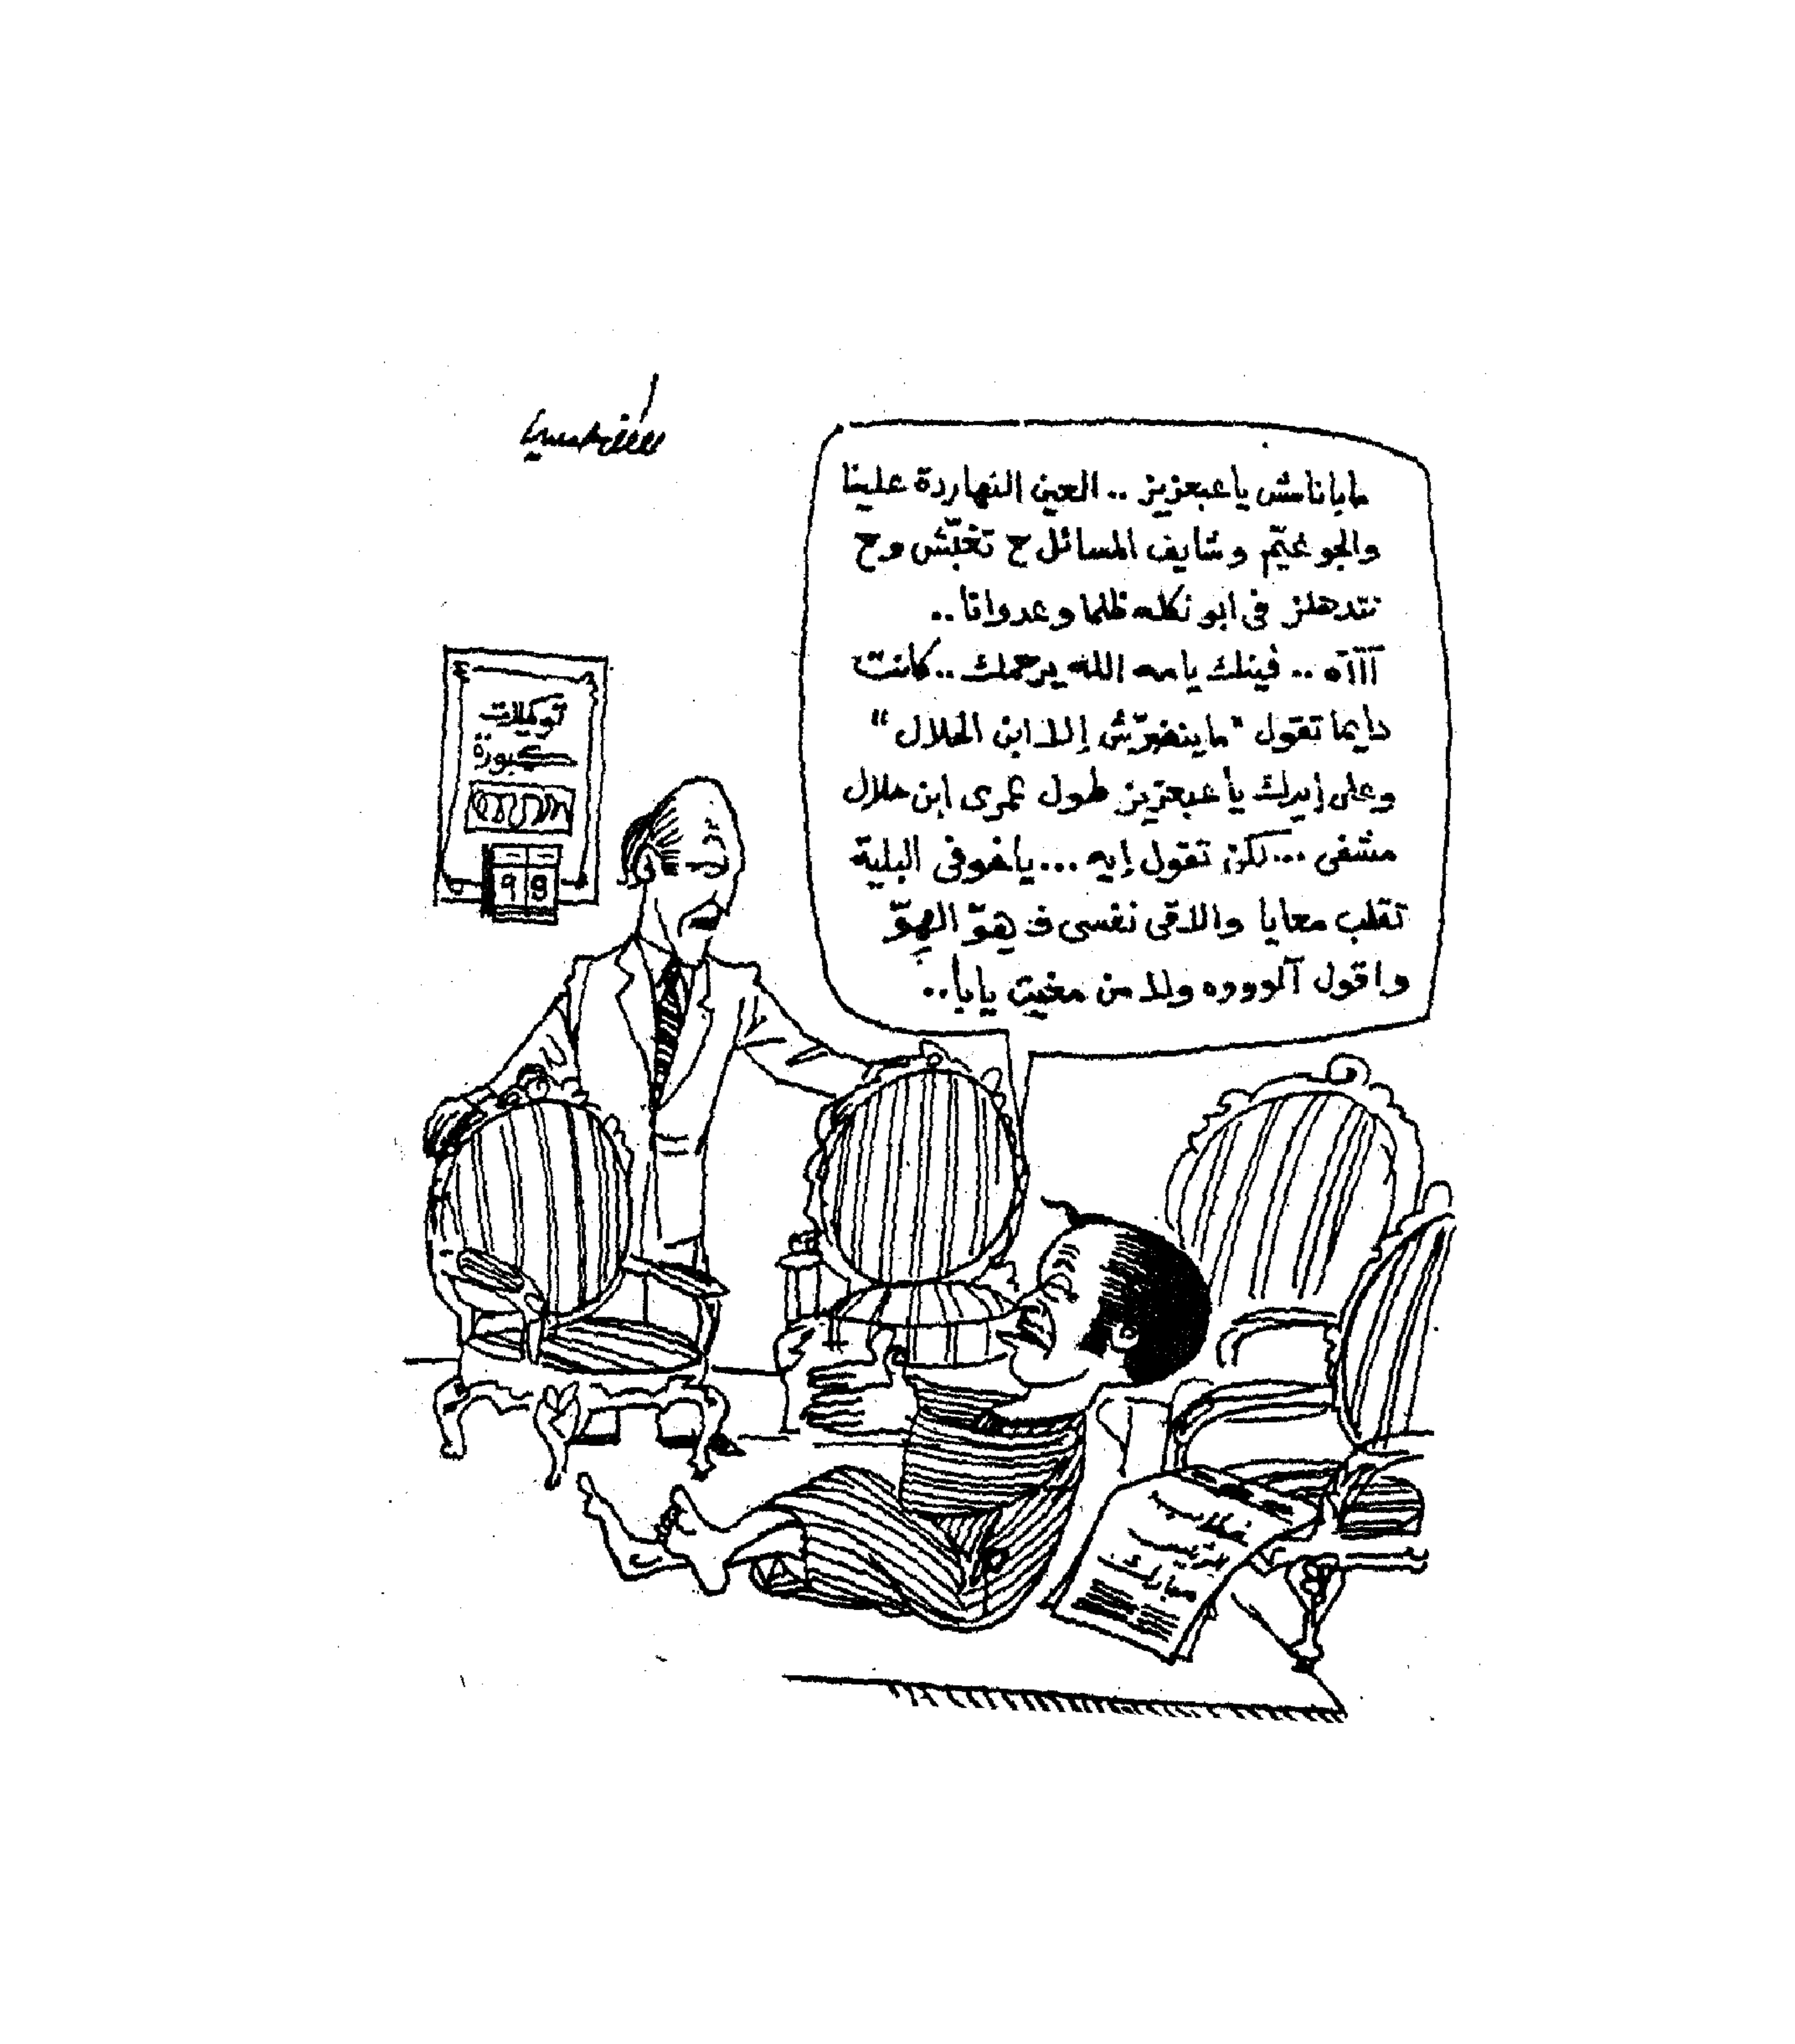 مابانامش ياعبعزيز .. العين النهاردة علينا
والجو غيّم وشايف المسائل ح تغبّش وح
نتدهلز فى ابو نكله ظلما وعدوانا ..
آآآه .. فينك يامه الله يرحمك .. كانت
دايما تقول "ماينضرّش إلا ابن الحلال"
وعلى إيدك ياعبعزيز طول عمرى ابن حلال
مشفى ... لكن تقول إيه ... ياخوفى البلية
تقلب معايا والاقى نفسى ف هوّ الهوّ
واقول آلوووه ولا من مغيت يابا ..
توكيلات
كبورة
٩ 8